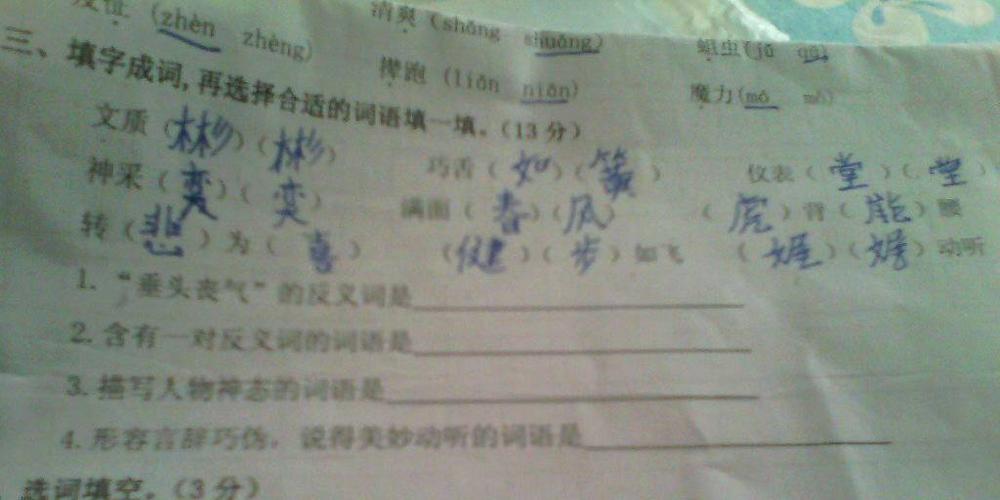 (zhèn zhèng) 清爽(shǎng shuǎng) 蛆虫(jū qū)
撵跑(liǎn niǎn) 魔力(mó mǒ)
三、填字成词,再选择合适的词语填一填。(13分)
文质(彬)(彬) 巧舌(如)(簧) 仪表(堂)(堂)
神采(奕)(奕) 满面(春)(风) (虎)背(熊)腰
转(悲)为(喜) (健)(步)如飞 (娓)(娓)动听
1. “垂头丧气”的反义词是
2. 含有一对反义词的词语是
3. 描写人物神态的词语是
4. 形容言辞巧伪,说得美妙动听的词语是
选词填空。(3分)